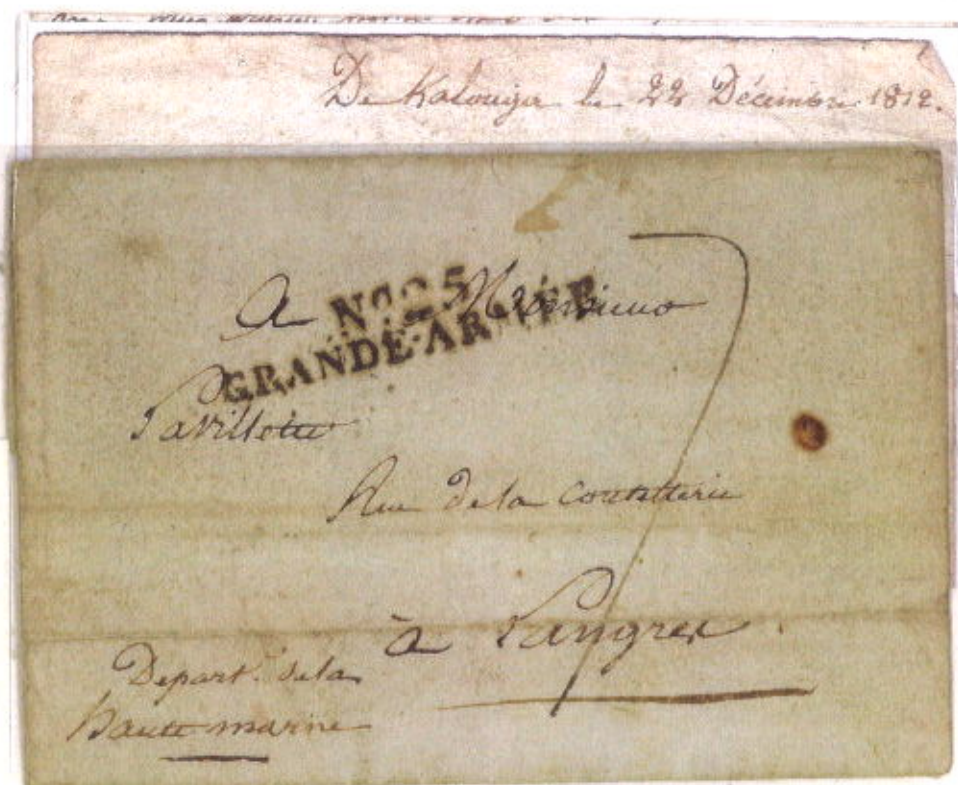 De Kalouga le 22 Décembre 1812.
A Monsieur
N° 25
GRANDE-ARMÉE
Lavillette
Rue de la Coutellerie
à Langres
Depart.t de la
haute marne
7